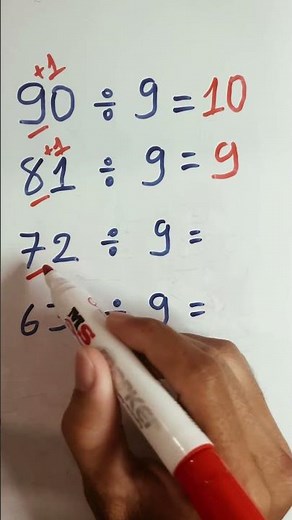 +1
90 ÷ 9 = 10
+1
81 ÷ 9 = 9
72 ÷ 9 =
6 ÷ 9 =